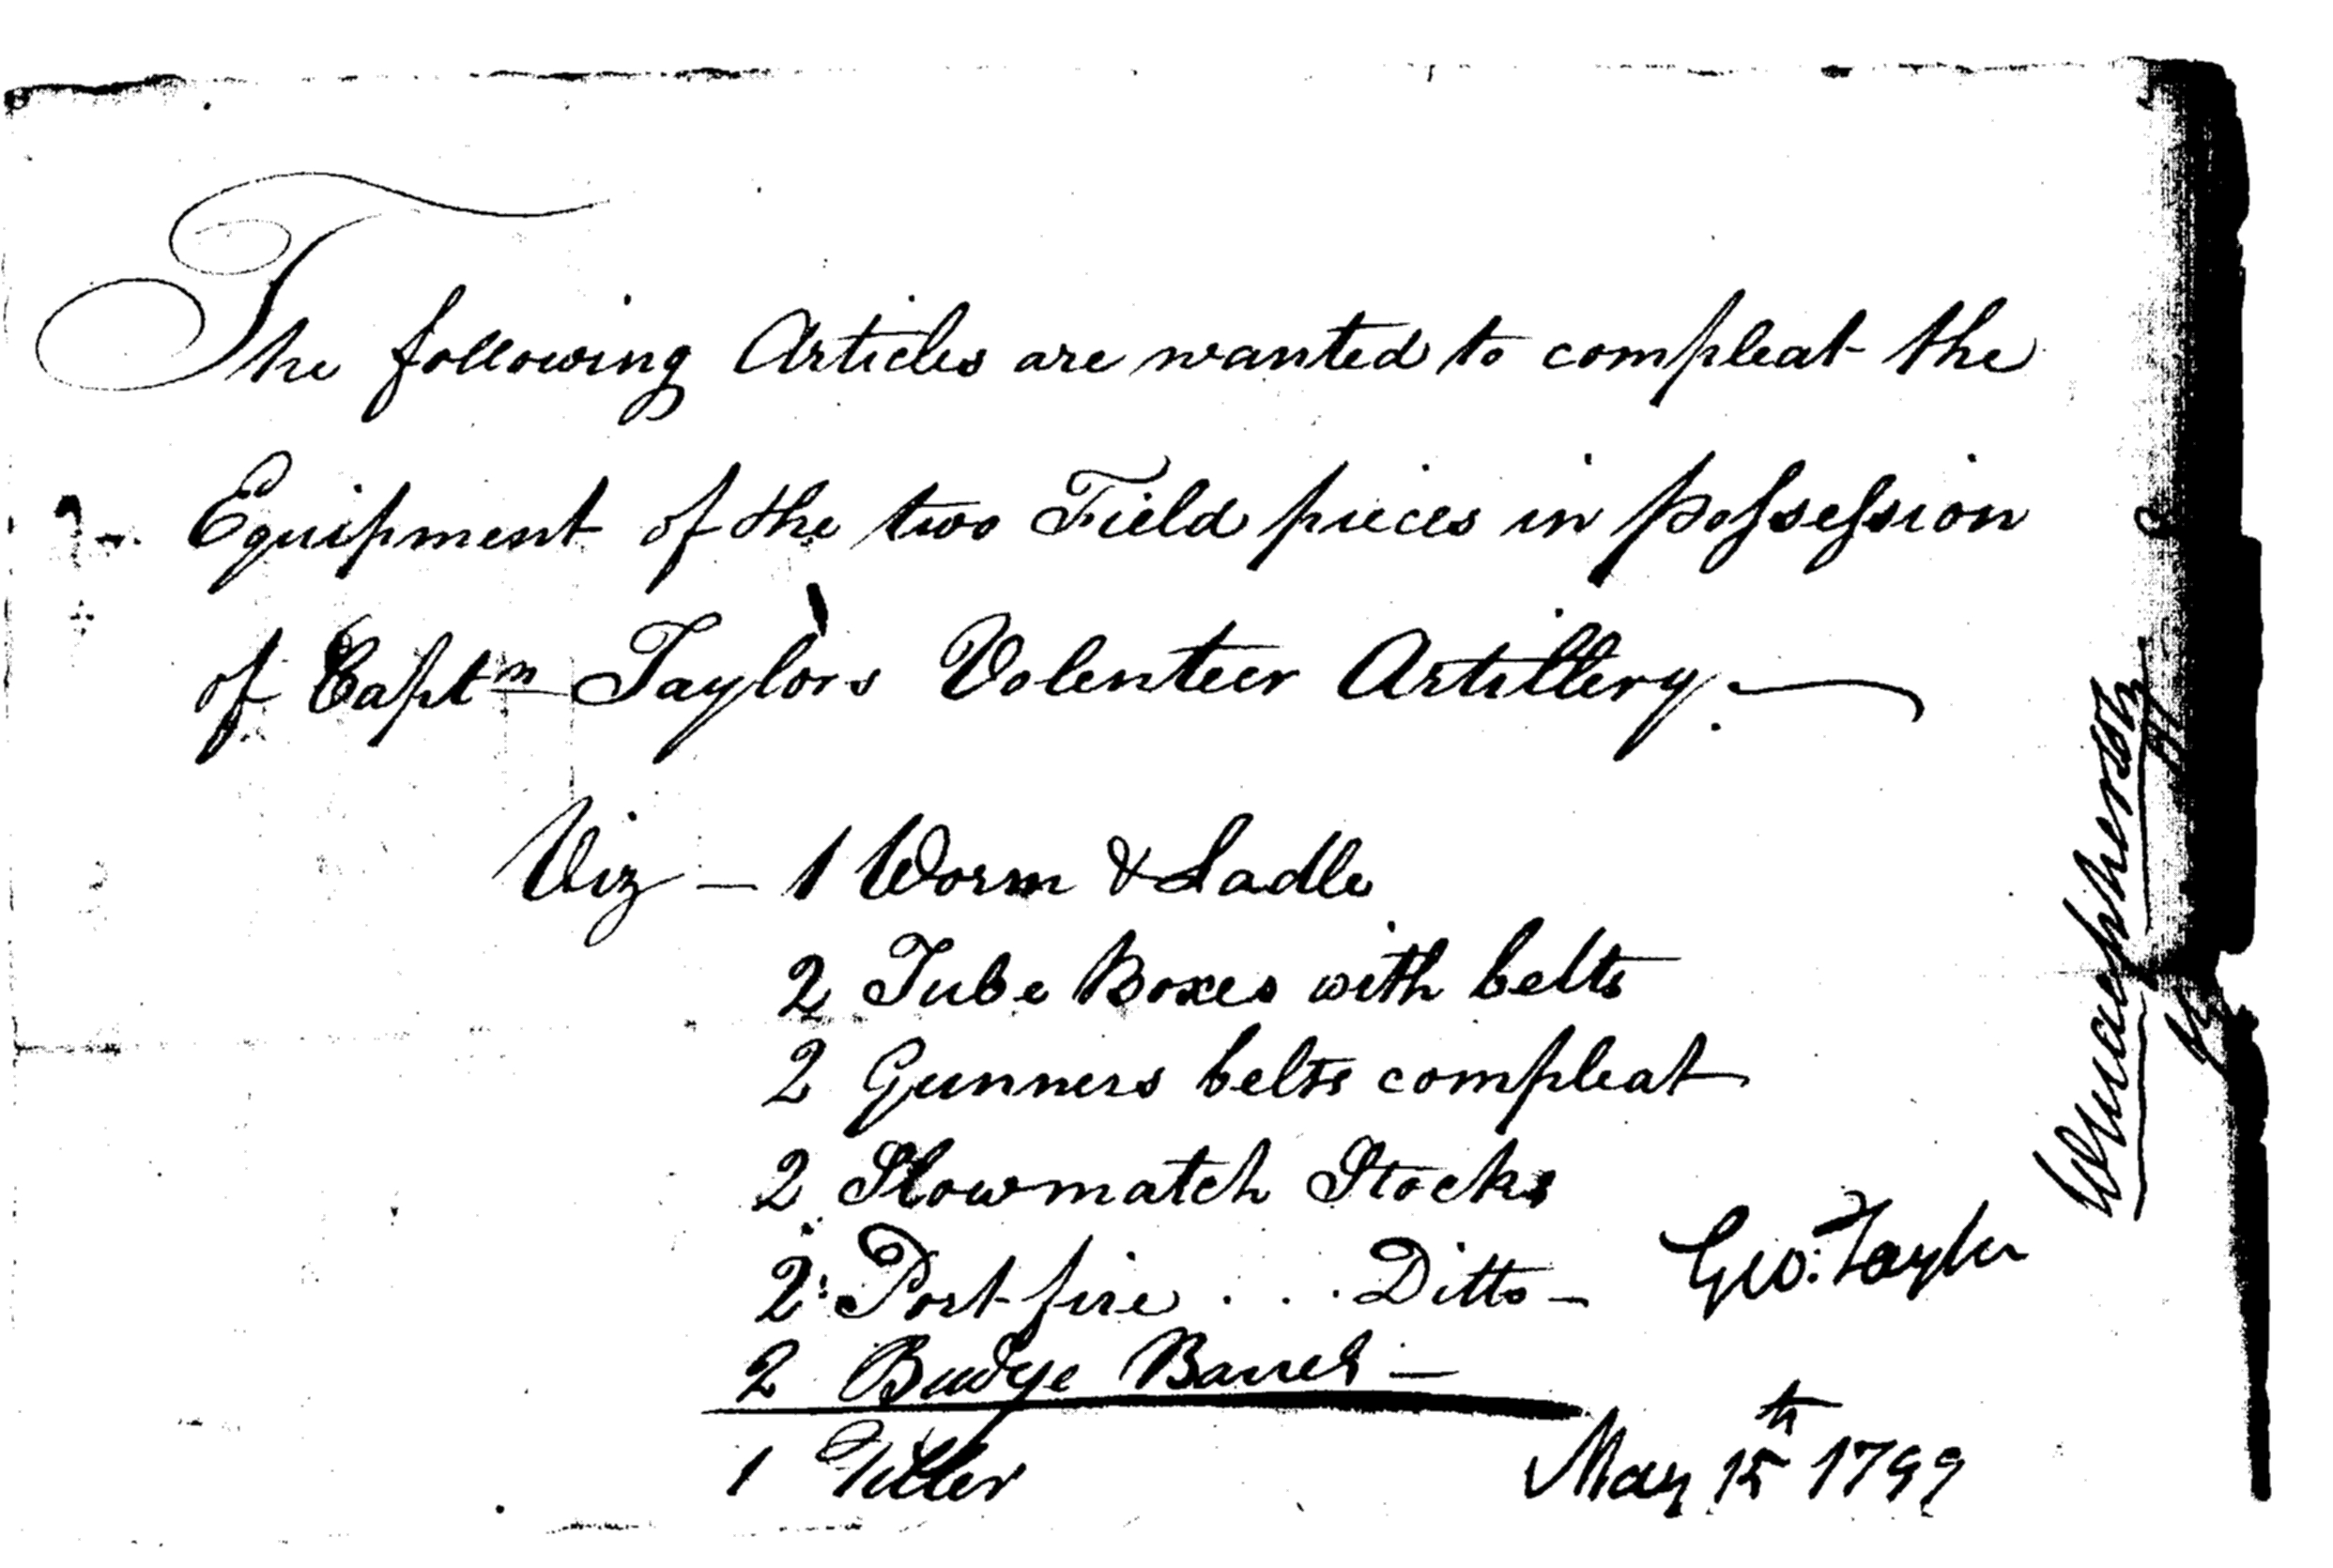 The following Articles are wanted to compleat the
Equipment of the two Field pieces in possession
of Captm Taylors Volenteer Artillery.
Viz — 1 Worm & Ladle
2 Tube Boxes with belts
2 Gunners belts compleat
2 Slowmatch Stocks
2 Port fire . . . Ditto —
2 Budge Barrels —
1 Tiller
Geo: Taylor
May 15th 1799
Wmacpherson